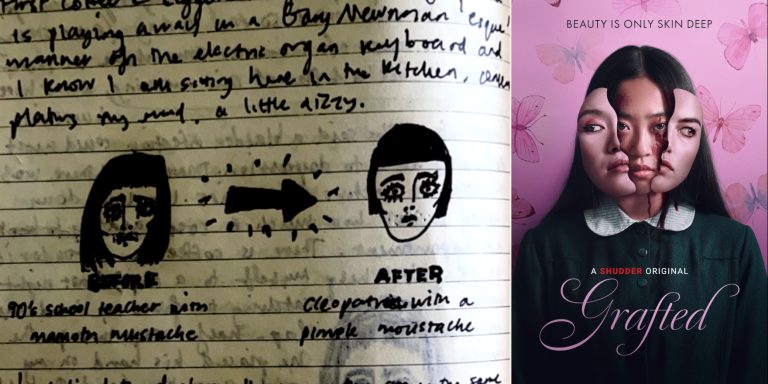 is playing away in a Gary Newman 'esque'
manner on the electric organ keyboard and
I know I am sitting here in the kitchen,
plating my mind, a little dizzy.
BEFORE
AFTER
90's school teacher with
mamoth mustache
Cleopatra with a
pimple moustache
the same
BEAUTY IS ONLY SKIN DEEP
A SHUDDER ORIGINAL
Grafted